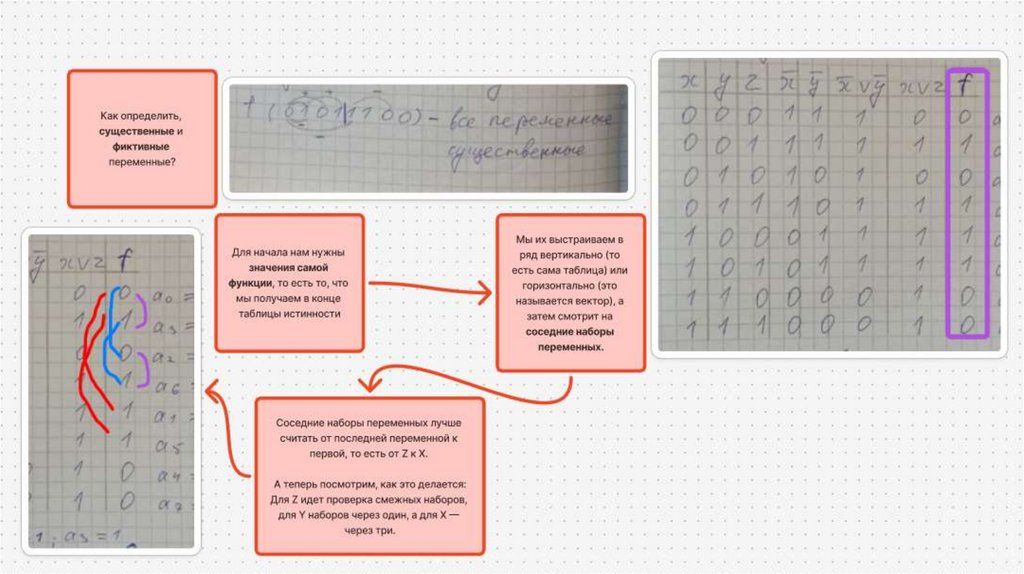 Как определить,
существенные и
фиктивные
переменные?
f (01011100) – все переменные
существенные
x y z x̄ ȳ x̄ ∨ ȳ x ∨ z f
0 0 0 1 1 1 0 0
0 0 1 1 1 1 1 1
0 1 0 1 0 1 0 0
0 1 1 1 0 1 1 1
1 0 0 0 1 1 1 1
1 0 1 0 1 1 1 1
1 1 0 0 0 0 1 0
1 1 1 0 0 0 1 0
Для начала нам нужны
значения самой
функции, то есть то, что
мы получаем в конце
таблицы истинности
Мы их выстраиваем в
ряд вертикально (то
есть сама таблица) или
горизонтально (это
называется вектор), а
затем смотрит на
соседние наборы
переменных.
Соседние наборы переменных лучше
считать от последней переменной к
первой, то есть от Z к X.
А теперь посмотрим, как это делается:
Для Z идет проверка смежных наборов,
для Y наборов через один, а для X —
через три.
ȳ x ∨ z f
0 0 a₀ =
1 1 a₃ =
0 0 a₂ =
1 a₆ =
1 1 a₁ =
1 1 a₅
1 0 a₄ =
1 0 a₇
1; a₃ = 1